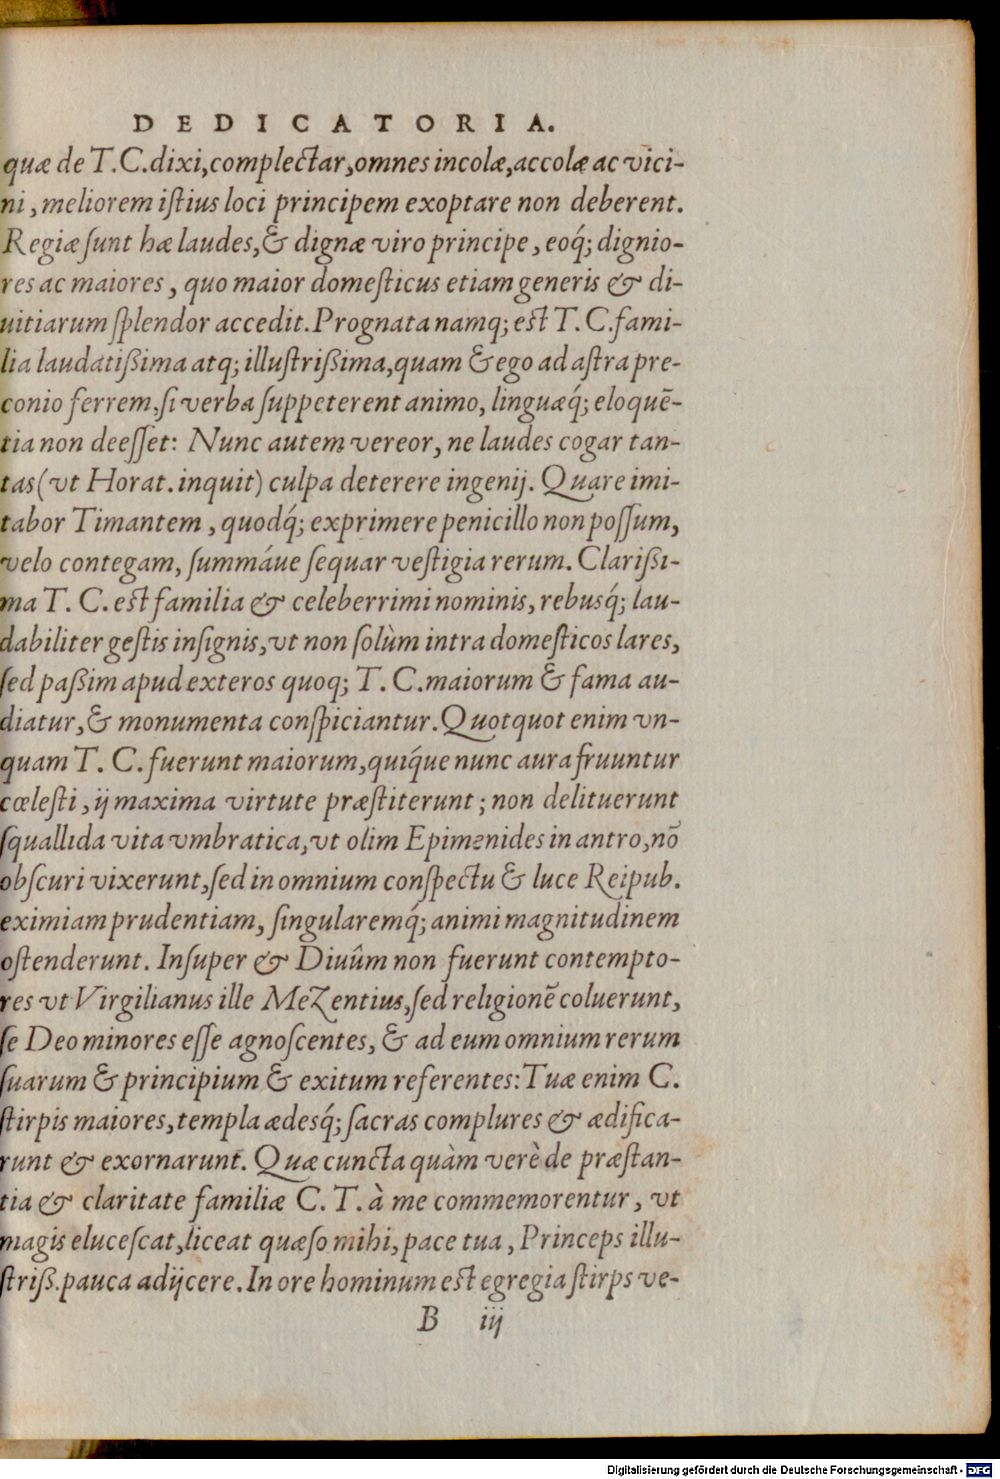 DEDICATORIA.
quæ de T.C.dixi,complectar,omnes incolæ,accolæ ac vici-
ni, meliorem iſtius loci principem exoptare non deberent.
Regiæ ſunt hæ laudes,& dignæ viro principe, eoq́; dignio-
res ac maiores, quo maior domeſticus etiam generis & di-
uitiarum ſplendor accedit. Prognata namq; eſt T.C.fami-
lia laudatißima atq; illuſtrißima,quam & ego ad aſtra pre-
conio ferrem,ſi verba ſuppeterent animo, linguæq́; eloquē-
tia non deeſſet: Nunc autem vereor, ne laudes cogar tan-
tas (vt Horat. inquit) culpa deterere ingenij. Quare imi-
tabor Timantem, quodq́; exprimere penicillo non poſſum,
velo contegam, ſummáue ſequar veſtigia rerum. Clarißi-
ma T. C. eſt familia & celeberrimi nominis, rebusq́; lau-
dabiliter geſtis inſignis,vt non ſolùm intra domeſticos lares,
ſed paßim apud exteros quoq; T. C. maiorum & fama au-
diatur,& monumenta conſpiciantur. Quotquot enim vn-
quam T. C. fuerunt maiorum,quíque nunc aura fruuntur
cœleſti, ij maxima virtute præſtiterunt; non delituerunt
ſquallida vita vmbratica,vt olim Epimenides in antro,nō
obſcuri vixerunt,ſed in omnium conſpectu & luce Reipub.
eximiam prudentiam, ſingularemq́; animi magnitudinem
oſtenderunt. Inſuper & Diuûm non fuerunt contempto-
res vt Virgilianus ille Mezentius,ſed religionē coluerunt,
ſe Deo minores eſſe agnoſcentes, & ad eum omnium rerum
ſuarum & principium & exitum referentes: Tuæ enim C.
ſtirpis maiores,templa ædesq́; ſacras complures & ædifica-
runt & exornarunt. Quæ cuncta quàm verè de præſtan-
tia & claritate familiæ C. T. à me commemorentur, vt
magis eluceſcat,liceat quæſo mihi, pace tua, Princeps illu-
ſtriß.pauca adijcere. In ore hominum eſt egregia ſtirps ve-
B iij
Digitalisierung gefördert durch die Deutsche Forschungsgemeinschaft - DFG